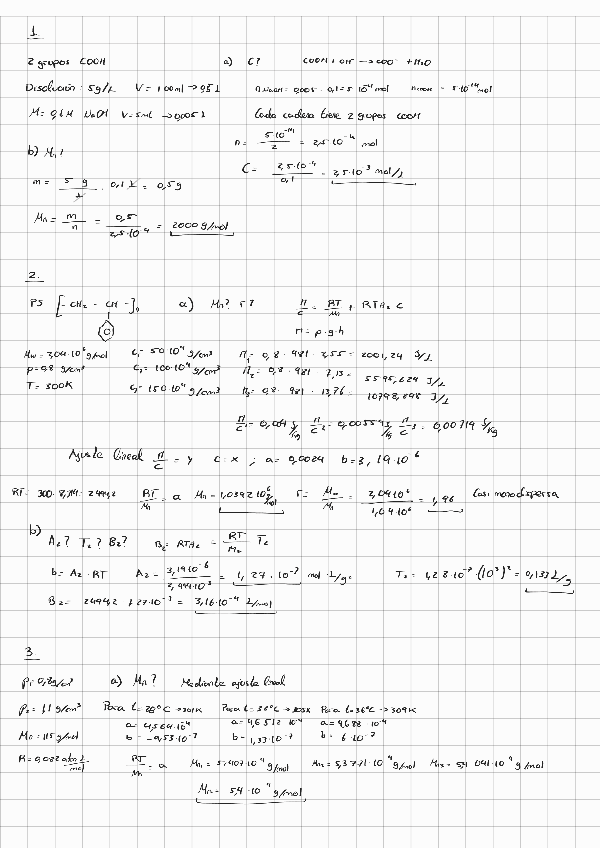 1.
2 grupos COOH
a) C?
COOH + OH⁻ → COO⁻ + H₂O
Disolución: 5g/L V= 100ml → 0,1 L
M= 0,1 M NaOH V= 5ml → 0,005 L
Cada cadena tiene 2 grupos COOH
n = 5·10⁻⁴ / 2 = 2,5·10⁻⁴ mol
C = 2,5·10⁻⁴ / 0,1 = 2,5·10⁻³ mol/L
b) Mn?
m = 5 g / L · 0,1 L = 0,5g
Mn = m / n = 0,5 / 2,5·10⁻⁴ = 2000 g/mol
2.
PS [-CH₂ - CH-]n
a) Mn? r?
Π/C = RT/Mn + RTA₂ C
Π = ρ·g·h
Mw = 3,04·10⁶ g/mol C₁= 50·10⁻⁴ g/cm³ Π₁= 0,8 · 981 · 2,55 = 2001,24 J/L
ρ=0,8 g/cm³ C₂= 100·10⁻⁴ g/cm³ Π₂= 0,8 · 981 · 7,13 = 5595,624 J/L
T= 300K C₃= 150·10⁻⁴ g/cm³ Π₃= 0,8 · 981 · 13,76 = 10798,848 J/L
Ajuste lineal Π/C = y C = x ; a= 0,0024 b= 3,19·10⁻⁶
RT= 300·8,314= 2494,2 RT/Mn = a Mn= 1,0392·10⁶ g/mol r= Mw/Mn = 2,04·10⁶ / 1,04·10⁶ = 1,96 Casi monodispersa
b)
A₂? Γ₂? B₂? B₂= RTA₂ = RT/Mn Γ₂
b= A₂ · RT A₂= 3,19·10⁻⁶ / 2,494·10³ = 1,27·10⁻⁷ mol·L/g²
Γ₂= 1,28·10⁻⁷·(10³)² = 0,133 L/g
B₂= 2494,2 · 1,27·10⁻⁷ = 3,16·10⁻⁴ L/mol
3.
ρ₁= 0,8g/cm³ a) Mn? Mediante ajuste lineal
ρ₂= 1,1 g/cm³ Para t= 28°C → 301K Para t= 35°C → 308K Para t=36°C → 309K
a= 4,564·10⁻⁴ a= 4,6512·10⁻⁴ a= 4,688·10⁻⁴
M₀= 115 g/mol b= -9,53·10⁻⁷ b= 1,33·10⁻⁷ b= 6·10⁻⁷
R= 0,082 atm L / mol RT/Mn = a Mn₁= 5,407·10⁴ g/mol Mn₂= 5,3771·10⁴ g/mol Mn₃= 5,4041·10⁴ g/mol
Mn= 5,4·10⁴ g/mol